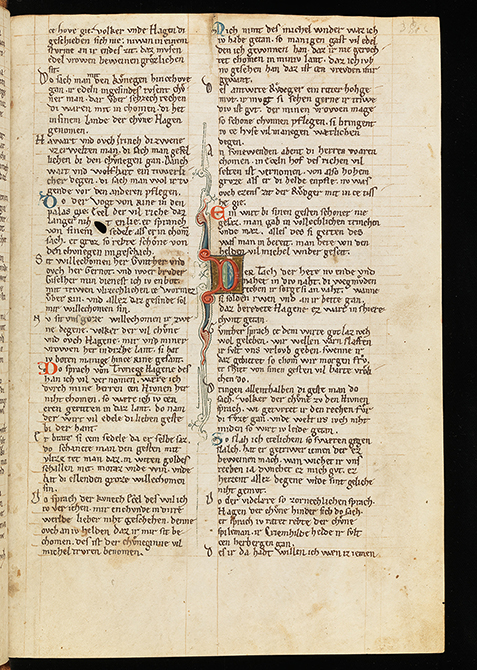 ce hove gie. volker unde Hagen di
geschieden sich nie. niwan in einem
sturme an ir endes zit. daz mvsen
edel vrowen beweinen grœzlichen
sit.
Do sach man mit dem kvnege hin ce hove
gan. ir edeln ingesindes tvsent chv̊
ner man. dar vber sehzech rechen
di waren mit in chomen. di het
in sinem lande der chvne Hagen
genomen.
Hawart vnd ovch Irinch di zwene
vz erwelten man. di sach man gesel
lichen bi den chvnegen gan. Danch
wart vnd wolfhart ein tiwerli
cher degen. di sach man wol ir tv
gende vor den anderen pflegen.
Do der vogt von Rine in den
palas gie. Ecel der vil riche daz
langer niht enlie. er spranch
von sinem sedele als er in chom
sach. ein grvz so rehte schone von
dem chvnege nie geschach.
Sit willechomen her Gvnther vnd
ovch her Gernot. vnd iwer brvder
Giselher. min dienest ich iv enbot.
mit trwen vlizechlichen ce Wormez
vber Rin. vnd allez daz gesinde sol
mir willechomen sin.
Nv sit vns groze willechomen ir zwe
ne degene. volker der vil chvne
vnd ovch Hagene. mir vnd miner
vrowen her in ditze lant. si hat
iv boten manige hin ce Rine gesant.
Do sprach von Tronege Hagene des
han ich vil vernomen. wer ich
dvrch mine herren cen Hivnen niht
chomen. so wer ich iv ce en
eren geriten in daz lant. do nam
der wirt vil edele di lieben geste
bi der hant.
Er braht si cem sedele da er selbe saz.
do schancte man den gesten mit
vlize tet man daz. in witen goldes
schallen met. moraz vnde win. vnde
hat di ellenden groze willechomen
sin.
Do sprach der kvnech Ecel des wil ich
iv verjehen. mir enchvnde in dirre
werlde lieber niht geschehen. denne
ovch an iv helden daz ir mir sit be
chomen. des ist der chvneginne vil
michel trvren benomen.
Mich nimt des michel wnder waz ich
iv habe getan. so manigen gast vil edel
den ich gewunnen han. daz ir nie geroch
tet chomen in miniv lant. daz ich iwch
nv gesehen han daz ist cen vrevden mir
gewant.
Des antwrte Rvdeger ein riter hohge
mvt. ir mvgt si sehen gerne ir triwe
div ist gvt. der miner vrowen mage
so schone chvnnen pflegen. si bringent
iv ce hvse vil manegen wætlichen
degen.
An svnewenden abent di herren waren
chomen. in Eceln hof des richen vil
selten ist vernomen. von also hohen
grvze als er di helde enpfie. nv was
ovch ezzens zit der kvnech mit in ce tiss
che gie.
Ein wirt bi sinen gesten schoner nie
gesaz. man gab in vollechlichen trinchen
vnde maz. alles des si gerten des
was man in bereit. man hete von den
helden vil michel wnder geseit.
Der tach der hete nv ende vnd
nahet in div naht. di wegmvden
rechen ir sorge si an vaht. wanne
si solden rwen vnd an ir bette gan.
daz beredete Hagene ez wart in schiere
chvnt getan.
Gvnther sprach ce dem wirte got laz ivch
wol geleben. wir wellen varn slaffen
ir svlt vns vrlovp geben. swenne ir
daz gebietet so chom wir morgen frv.
er schiet von sinen gesten vil harte vrœli
chen do.
Dringen allenthalben di geste man do
sach. volker der chvne zv den Hivnen
sprach. wi getvrret ir den rechen fvr
di fvze gan. vnde welt irs ivch niht
miden so wirt iv leide getan.
So slah ich etelichem so swæren gigen
slach. hat er getriwer iemen der ez
beweinen mach. wan wichet ir vns
rechen ia dvnchet ez mich gvt. ez
heizent alle degene vnde sint geliche
niht gemvt.
Do der videlære so zornechlichen sprach.
Hagen der chvne hinder sich do sach.
er sprach iv ratet rehte der chvne
spileman. ir Criemhilde helde ir svlt
cen herbergen gan.
Des ir da habt willen ich wæn iz iemen